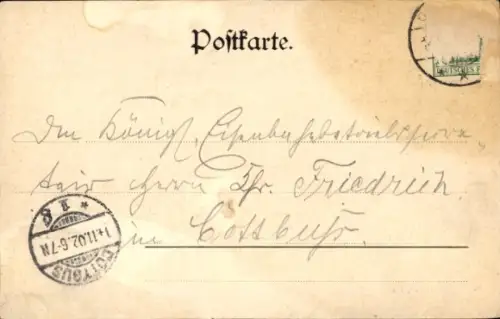 Postkarte.
Den Königl. Eisenbahnbetriebssecre-
tair Herrn Fr. Friedrich
in Cottbus.
COTTBUS
11.02.6-7N
* 1 8